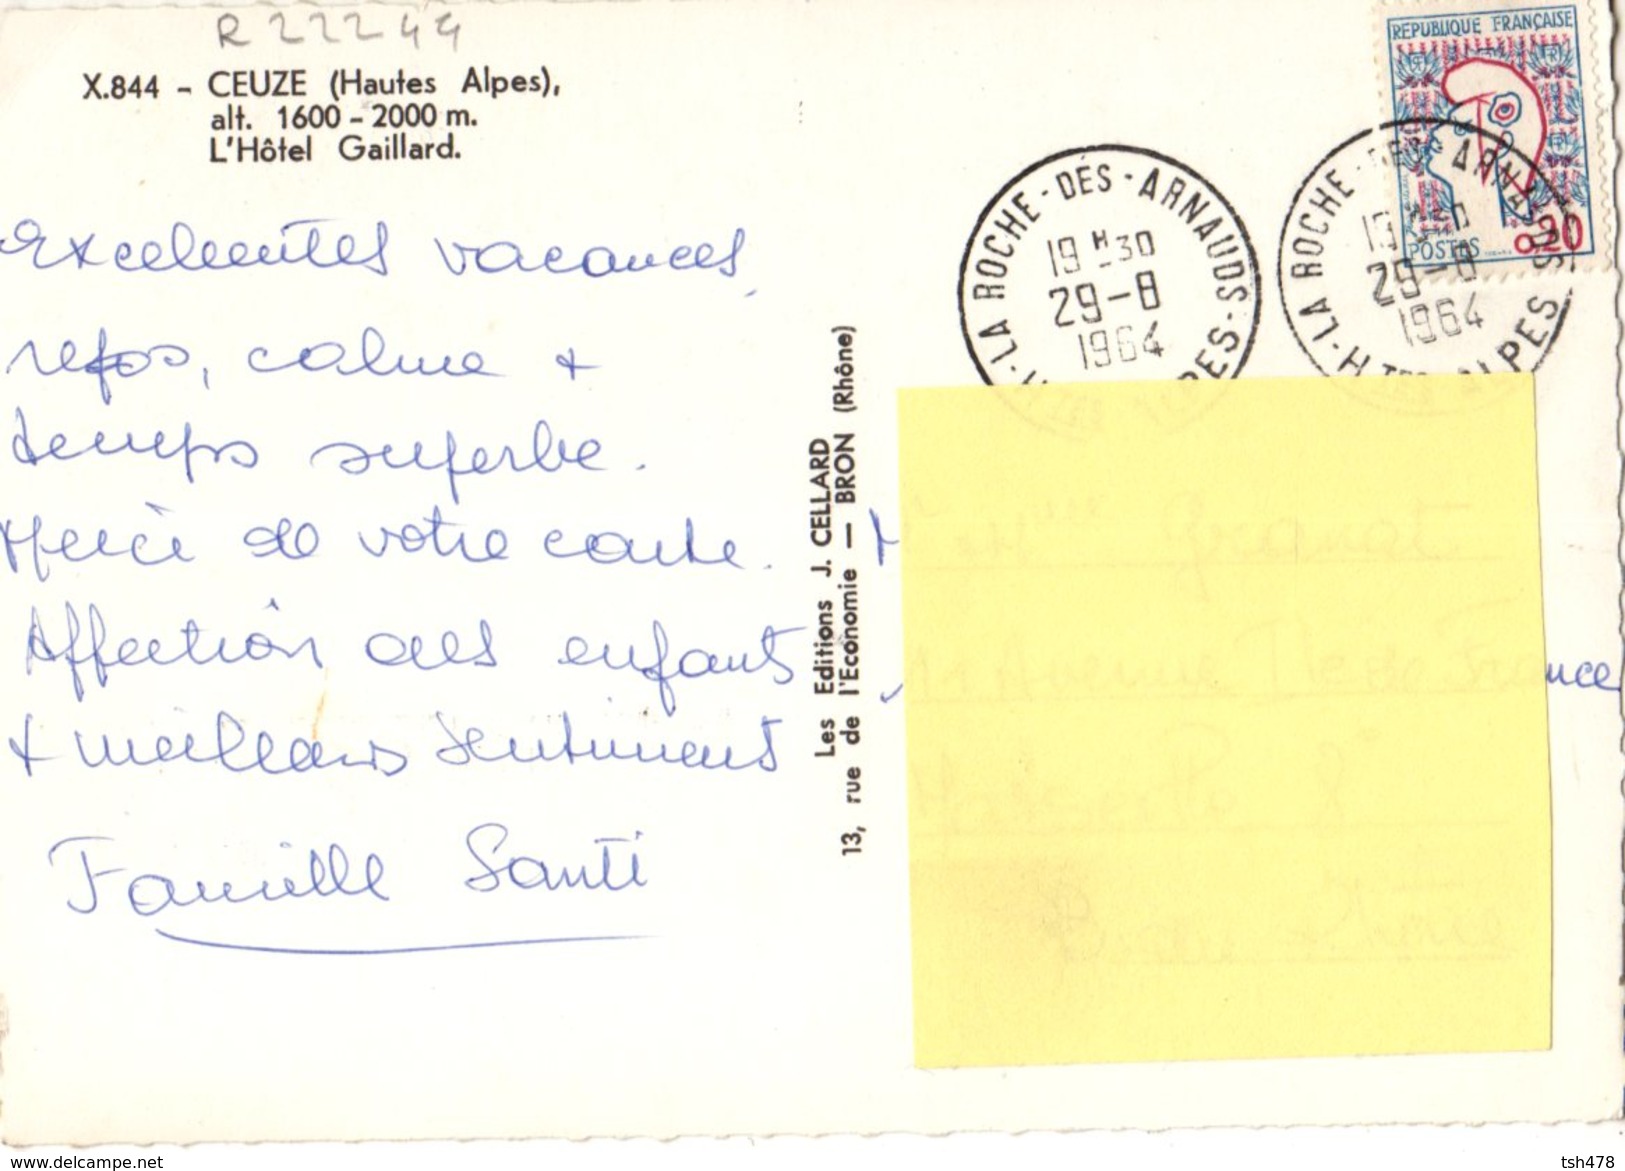 R 22244
X.844 - CEUZE (Hautes Alpes),
alt. 1600 - 2000 m.
L'Hôtel Gaillard.
Excellentes vacances,
repos, calme +
temps superbe.
Merci de votre carte.
Affection des enfants
+ meilleurs sentiments
Famille Santi
Les Editions J. CELLARD
13, rue de l'Economie — BRON (Rhône)
LA ROCHE-DES-ARNAUDS
19H30
29-8
1964
LA ROCHE-DES-ARNAUDS
H.TES ALPES
19H30
29-8
1964
REPUBLIQUE FRANÇAISE
POSTES
0,20
ance
www.delcampe.net
tsh478